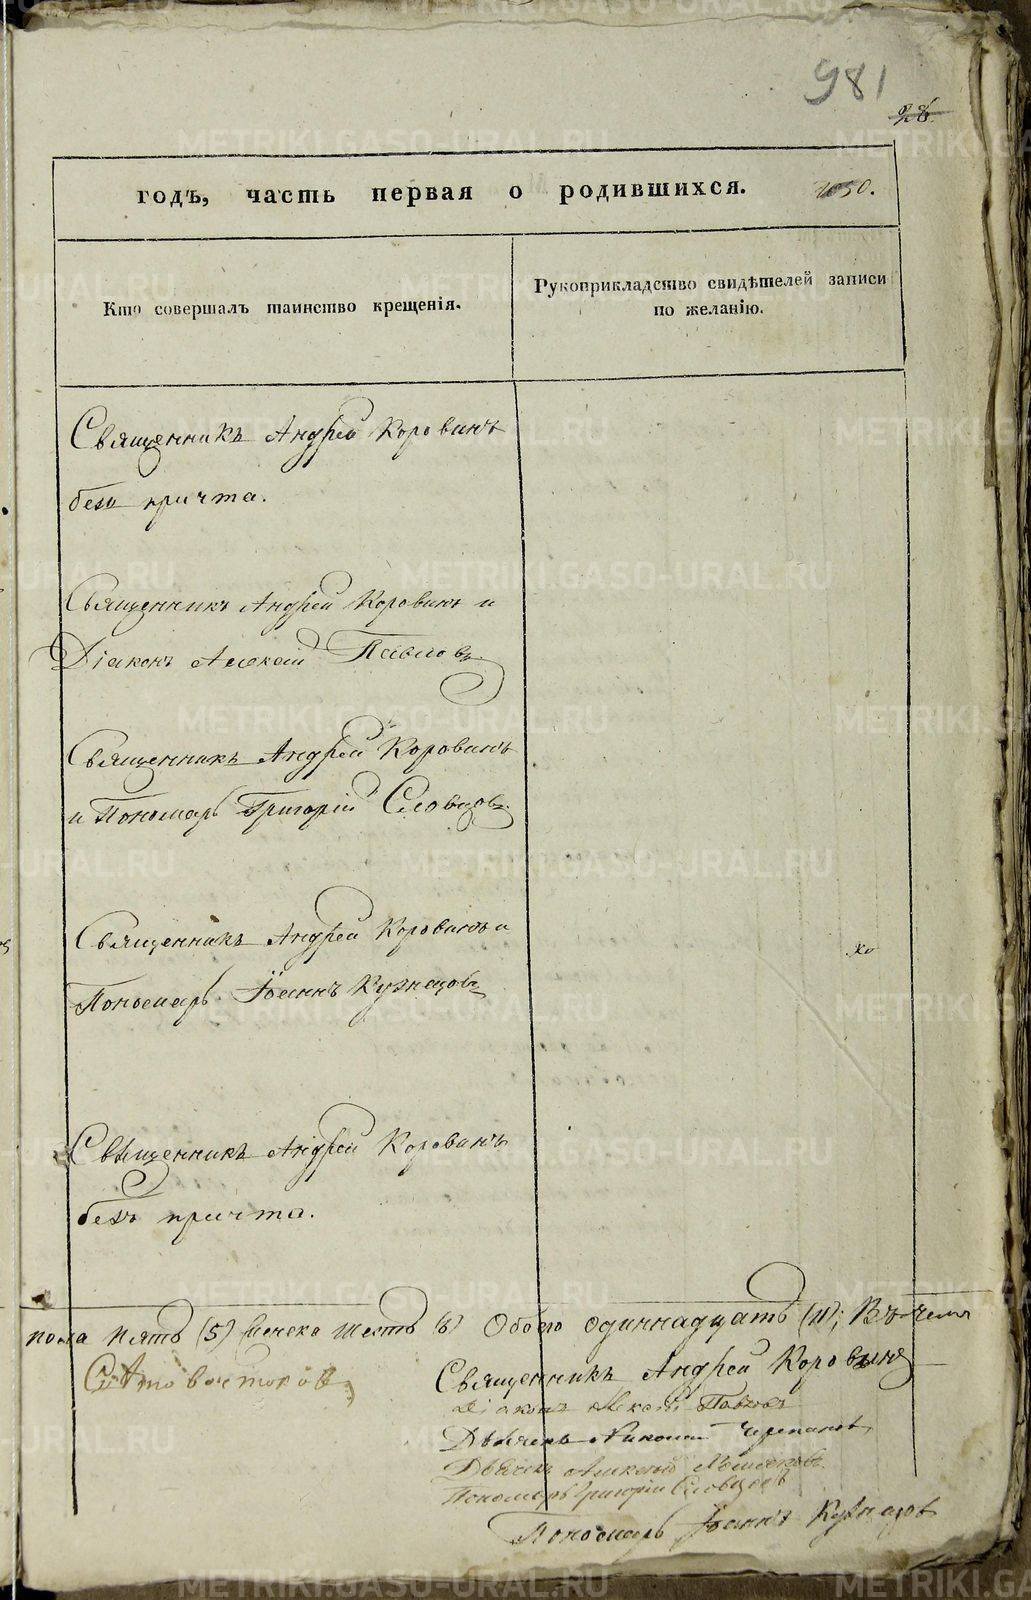 981
28
годъ, часть первая о родившихся.
Кто совершалъ таинство крещенія.
Рукоприкладство свидѣтелей записи
по желанію.
Священникъ Андрей Коровинъ
безъ причта.
Священникъ Андрей Коровинъ и
Діаконъ Алексій Павловъ
Священникъ Андрей Коровинъ
и Пономарь Григорій Словцовъ.
Священникъ Андрей Коровинъ и
Пономарь Іоаннъ Кузнецовъ
Священникъ Андрей Коровинъ
безъ причта.
пола пять (5) женска шесть (6) Обоего одиннадцать (11); Въ чемъ
Священникъ Андрей Коровинъ
Діаконъ Алексій Павловъ
Дьячекъ Николай
Дьячекъ Алексѣй
Пономарь Григорій Словцовъ
Пономарь Іоаннъ Кузнецовъ
METRIKI.GASO-URAL.RU